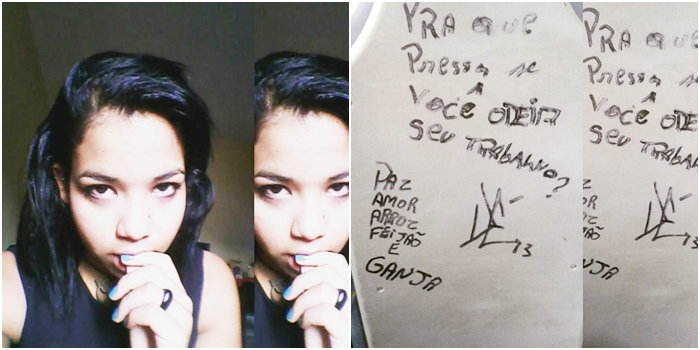 PRA QUE
Pressa se
Você ODEIA
SEU TRABALHO?
PAZ
AMOR
ARROZ
FEIJÃO
E
GANJA
13
PRA QUE
Pressa s
Você ODE
SEU TRABAL
Z
OR
OZ
JÃO
NJA